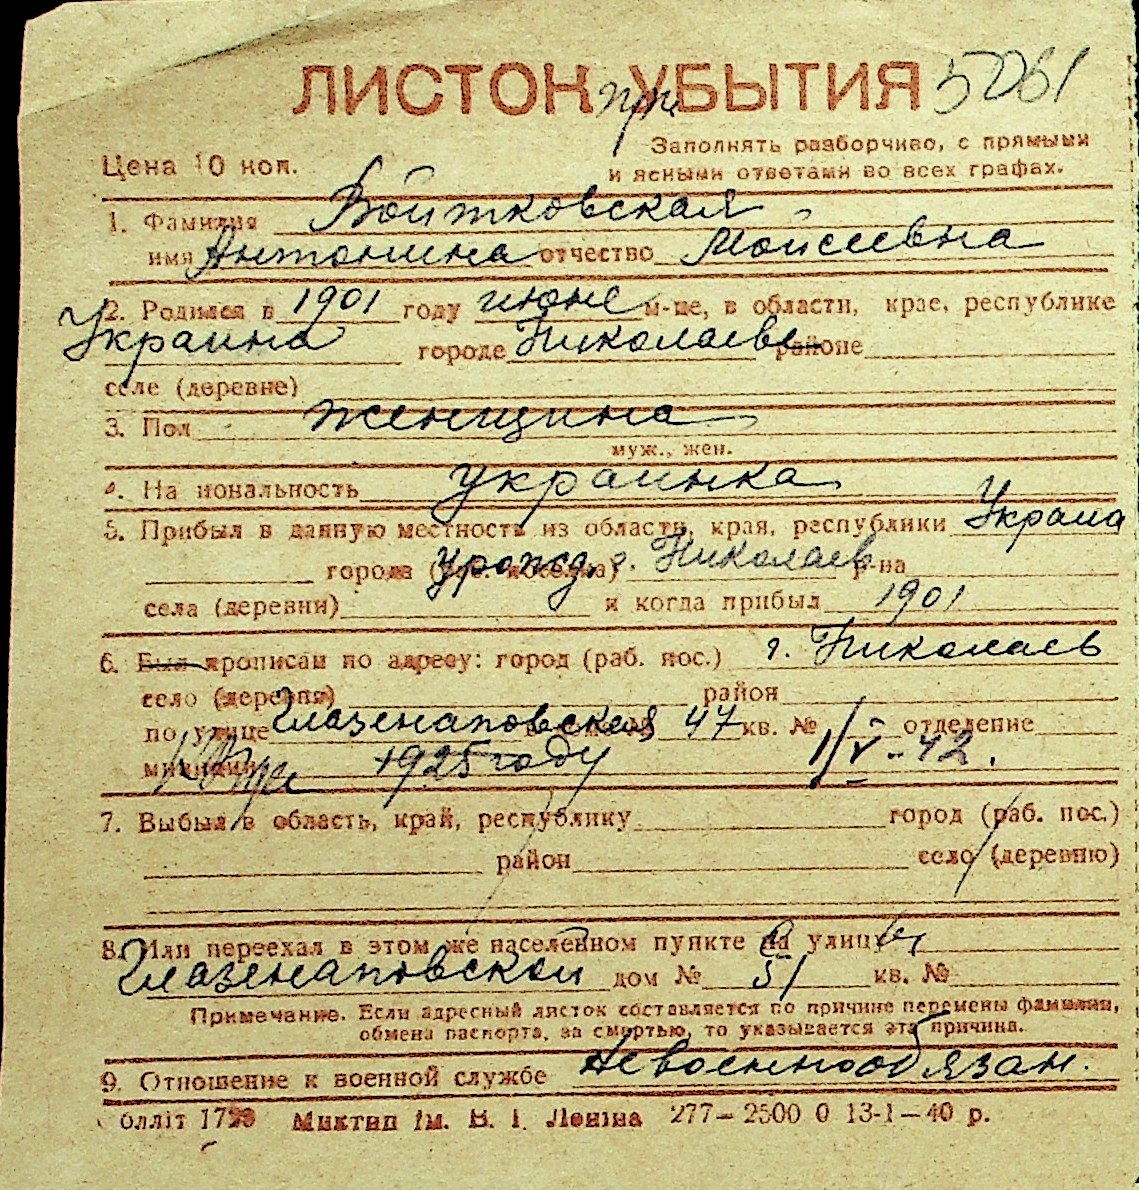 ЛИСТОК УБЫТИЯ 5061
при
Заполнять разборчиво, с прямыми
Цена 10 коп. и ясными ответами во всех графах.
1. Фамилия Войтковская
имя Антонина отчество Моисеевна
2. Родился в 1901 году июне м-це, в области, крае, республике
Украина городе Николаеве районе
селе (деревне)
3. Пол женщина
муж., жен.
4. Национальность украинка
5. Прибыл в данную местность из области, края, республики Украина
города урожд. г. Николаев р-на
села (деревни) и когда прибыл 1901
6. Был прописан по адресу: город (раб. пос.) г. Николаев
село (деревня) район
по улице Глазенаповская 47 кв. № отделение
милиции 1925 году 1/V-42.
7. Выбыл в область, край, республику город (раб. пос.)
район село (деревню)
8. Или переехал в этом же населенном пункте на улицу
Глазенаповской дом № 51 кв. №
Примечание. Если адресный листок составляется по причине перемены фамилии,
обмена паспорта, за смертью, то указывается эта причина.
9. Отношение к военной службе Невоеннообязан.
олліт 1799 Миктип Ім. В. І. Леніна 277—2500 0 13-1—40 р.